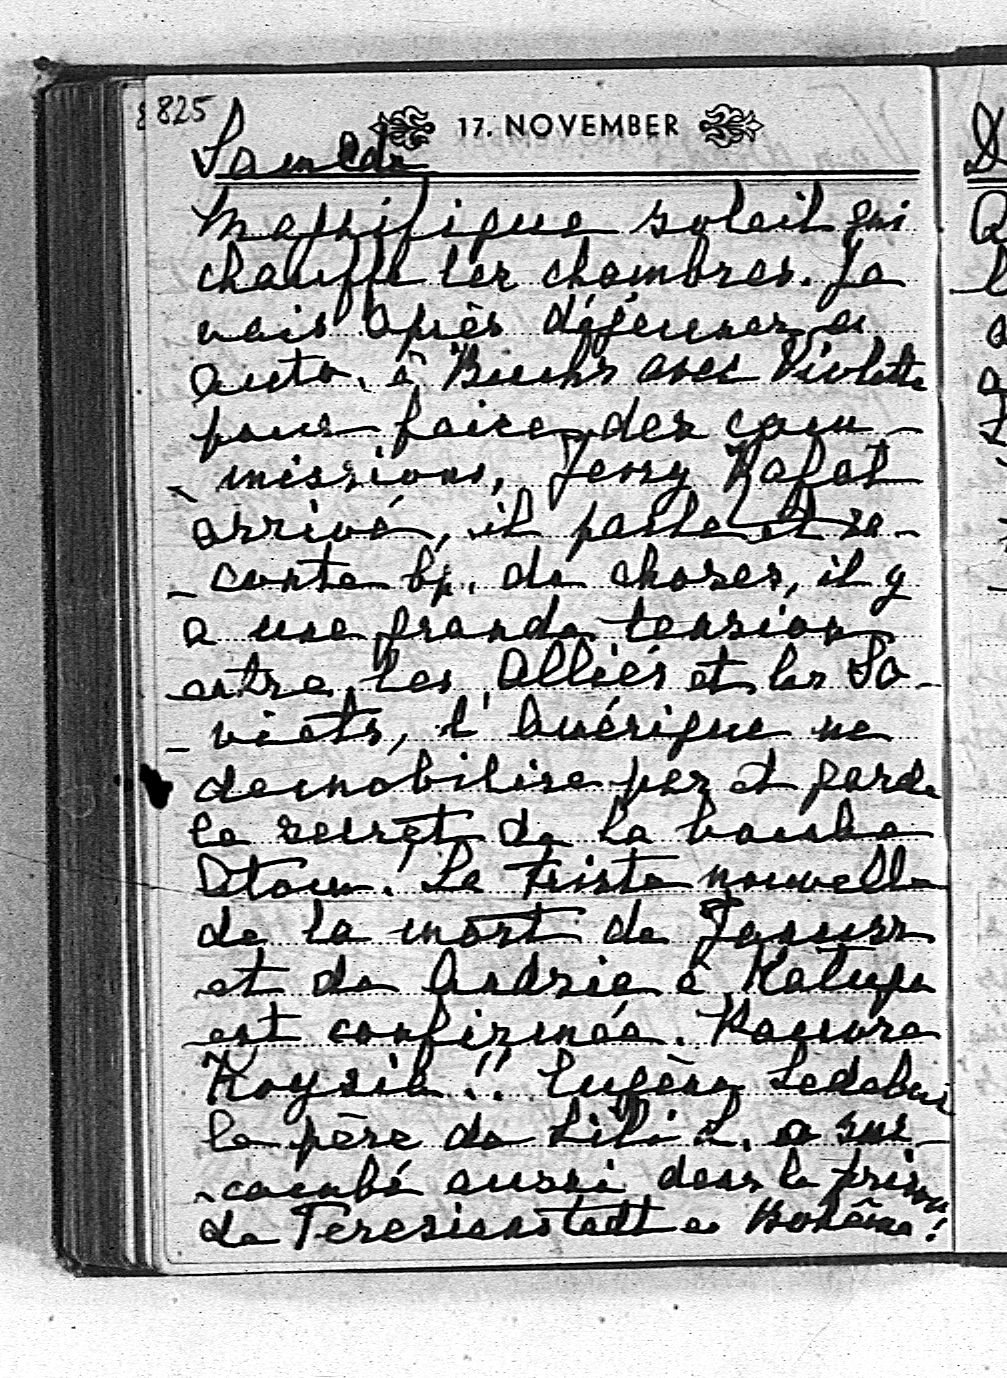 825
17. NOVEMBER
Samedi
Magnifique soleil qui
chauffe les chambres. Je
vais après déjeuner en
auto, à Buchs avec Violette
pour faire des com
missions, Jenny
arrivé, il parle et ra-
-conte bp. de choses, il y
a une grande tension
entre les Alliés et les So-
-viets, l'Amérique ne
demobilise pas et garde
le secret de la bombe
Atom.! La triste nouvelle
de la mort de
et de à
est confirmée.
!! Eugène Ledebur
le père de Lili L. a suc-
-combé aussi dans la prison
de Teresienstadt en Bohême!